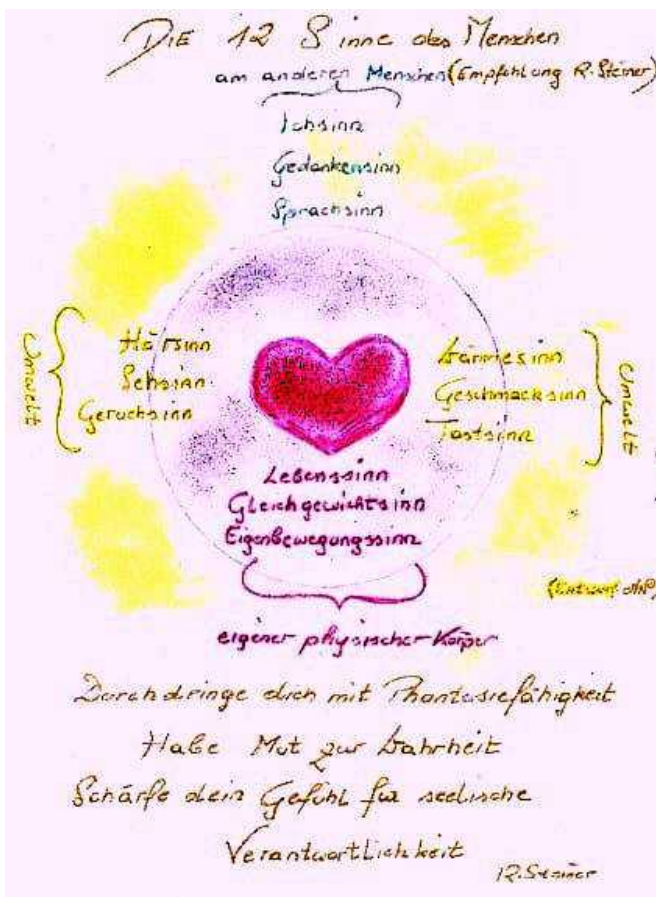 DIE 12 Sinne des Menschen
am anderen Menschen (Empfehlung R. Steiner)
Ichsinn
Gedankensinn
Sprachsinn
Umwelt
Hörsinn
Sehsinn
Geruchsinn
Wärmesinn
Geschmacksinn
Tastsinn
Umwelt
Lebenssinn
Gleichgewichtsinn
Eigenbewegungssinn
(Entwurf
eigener physischer Körper
Durchdringe dich mit Phantasiefähigkeit
Habe Mut zur Wahrheit
Schärfe dein Gefühl für seelische
Verantwortlichkeit
R. Steiner